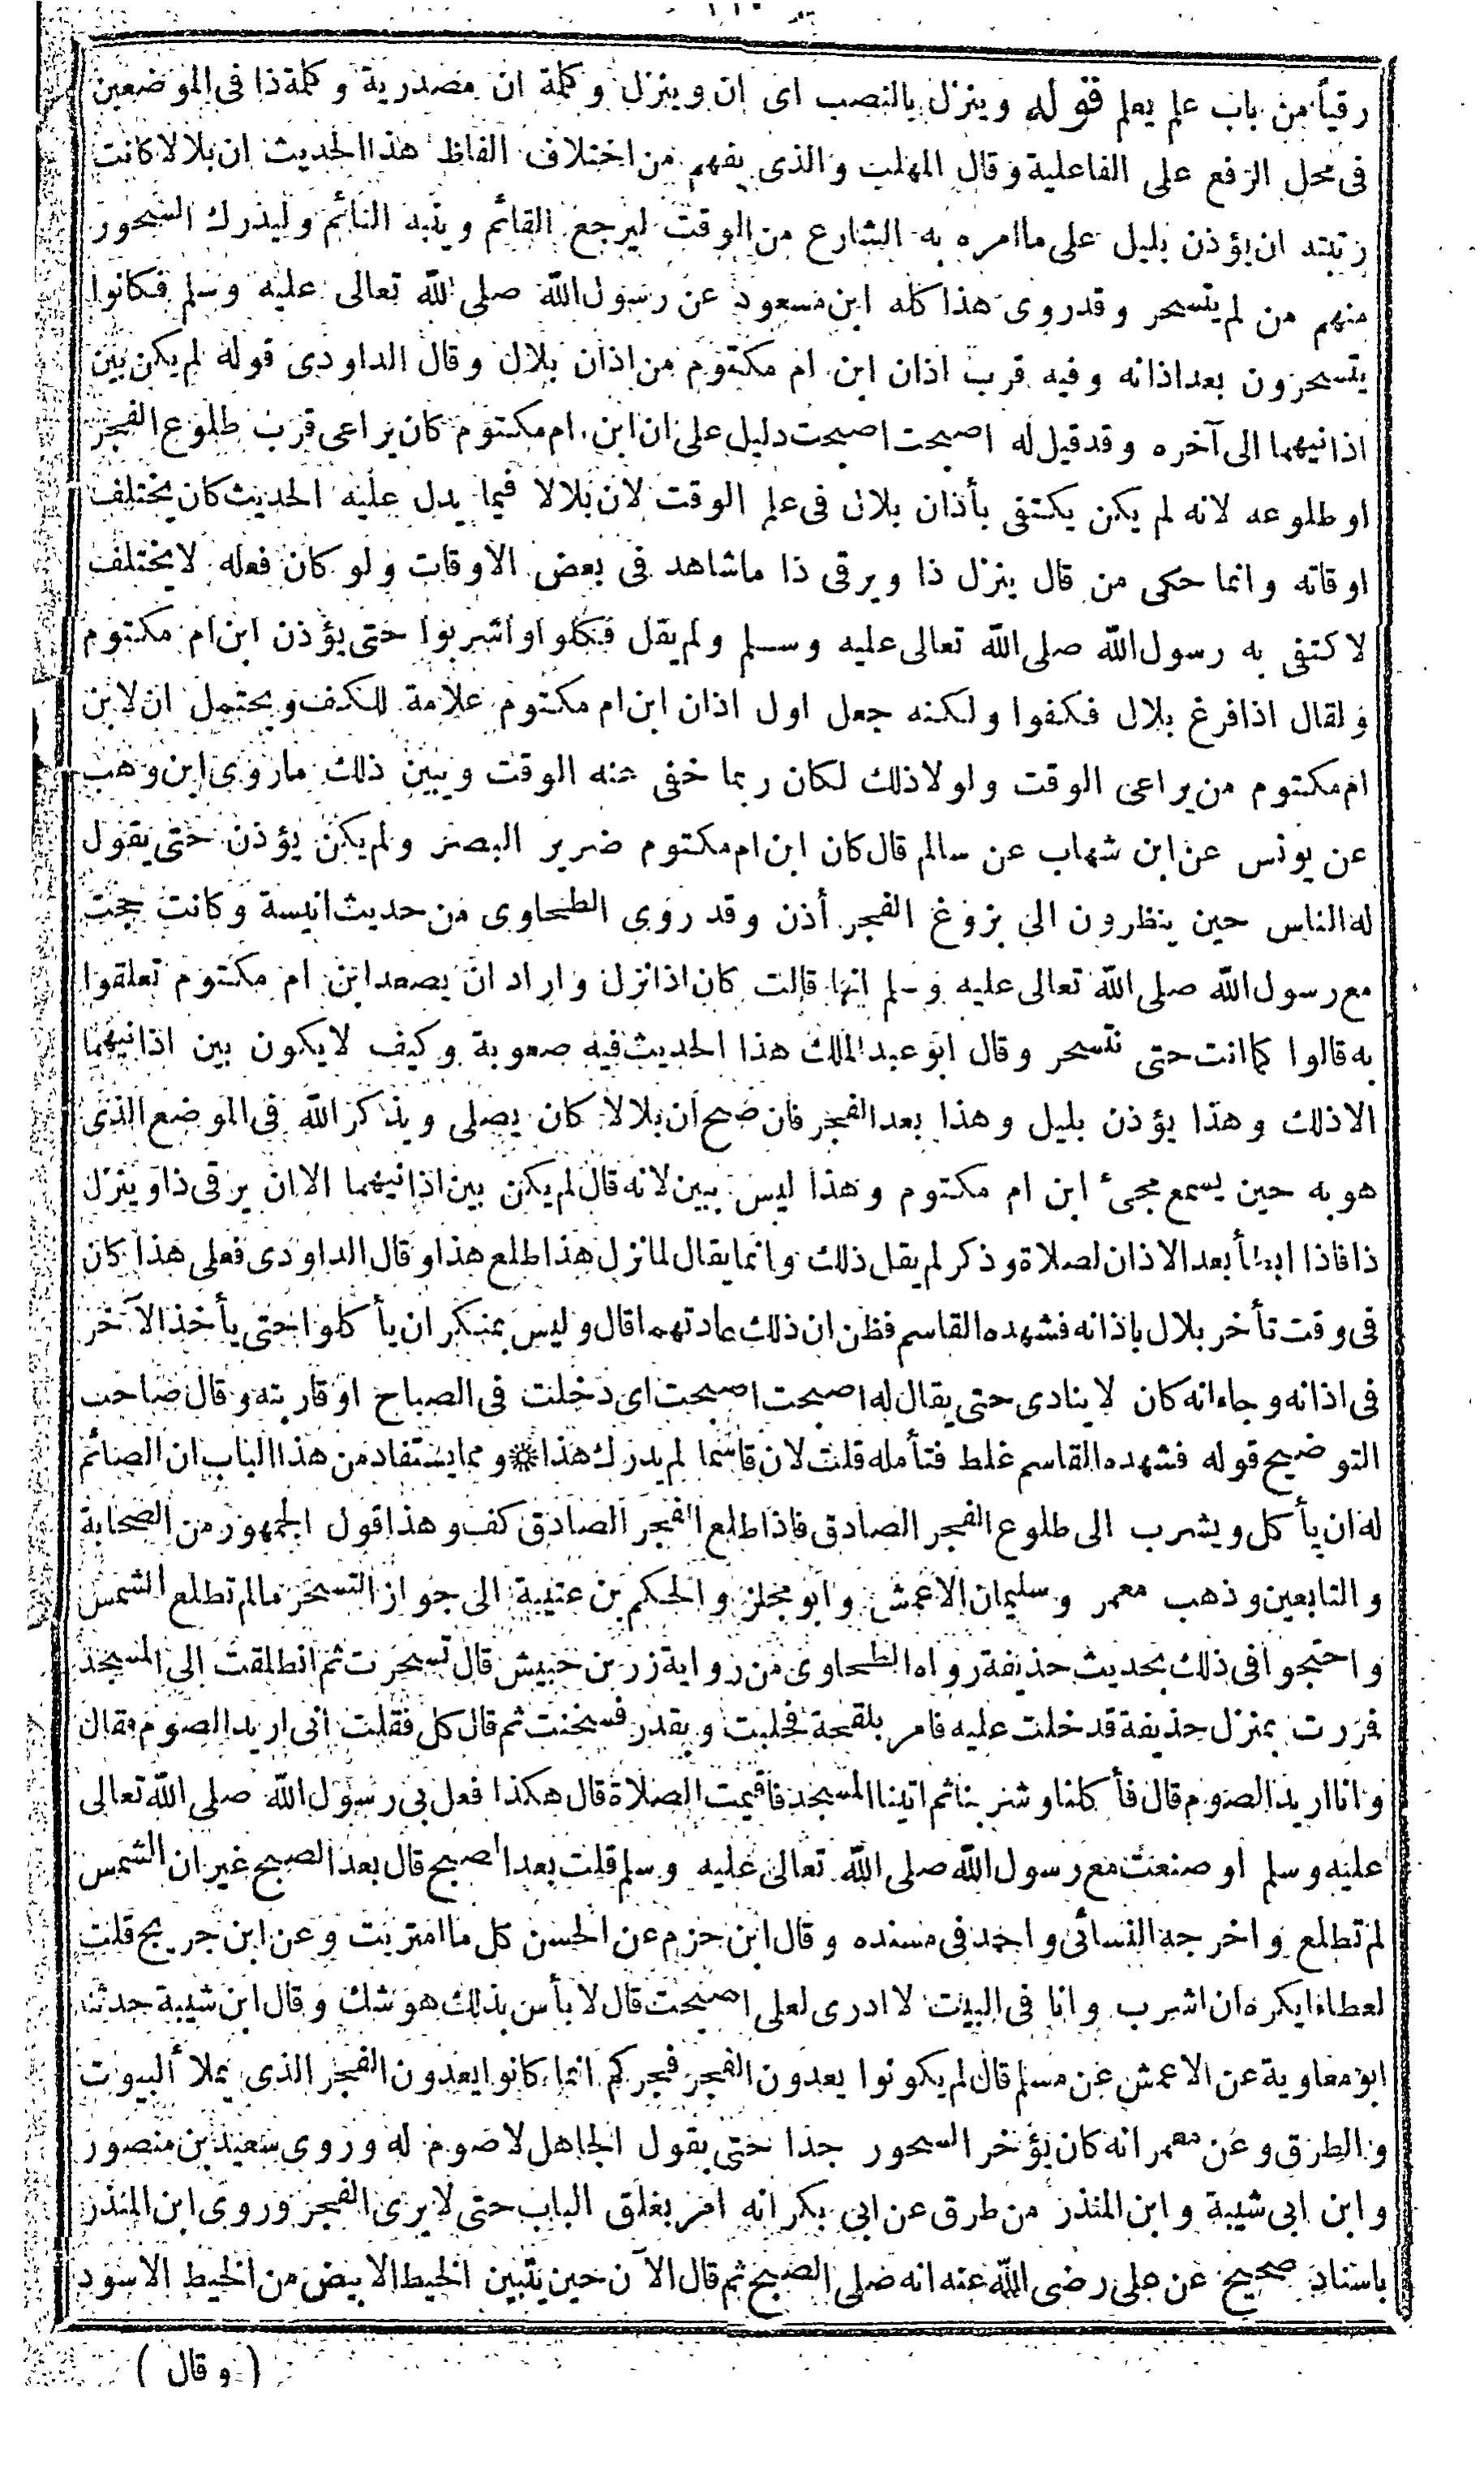 رقياً من باب علم يعلم قوله وينزل بالنصب اى ان وينزل وكلمة ان مصدرية وكلمة ذا فى الموضعين
فى محل الرفع على الفاعلية وقال المهلب والذى يفهم من اختلاف الفاظ هذا الحديث ان بلالا كانت
رتبته ان يؤذن بليل على ما امره به الشارع من الوقت ليرجع القائم وينبه النائم وليدرك السحور
منهم من لم يتسحر وقد روى هذا كله ابن مسعود عن رسول الله صلى الله تعالى عليه وسلم فكانوا
يتسحرون بعد اذانه وفيه قرب اذان ابن ام مكتوم من اذان بلال وقال الداودى قوله لم يكن بين
اذانيهما الى آخره وقد قيل له اصبحت اصبحت دليل على ان ابن ام مكتوم كان يراعى قرب طلوع الفجر
او طلوعه لانه لم يكن يكتفى بأذان بلال فى علم الوقت لان بلالا فيما يدل عليه الحديث كان يختلف
اوقاته وانما حكى من قال ينزل ذا ويرقى ذا ما شاهد فى بعض الاوقات ولو كان فعله لا يختلف
لاكتفى به رسول الله صلى الله تعالى عليه وسلم ولم يقل فكلوا واشربوا حتى يؤذن ابن ام مكتوم
ولقال اذا فرغ بلال فكفوا ولكنه جعل اول اذان ابن ام مكتوم علامة للكف ويحتمل ان لابن
ام مكتوم من يراعى الوقت ولولا ذلك لكان ربما خفى عنه الوقت ويبين ذلك ما روى ابن وهب
عن يونس عن ابن شهاب عن سالم قال كان ابن ام مكتوم ضرير البصر ولم يكن يؤذن حتى يقول
له الناس حين ينظرون الى بزوغ الفجر أذن وقد روى الطحاوى من حديث انيسة وكانت حجت
مع رسول الله صلى الله تعالى عليه وسلم انها قالت كان اذا نزل واراد ان يصعد ابن ام مكتوم تعلقوا
به قالوا كما انت حتى نتسحر وقال ابو عبد الملك هذا الحديث فيه صعوبة وكيف لا يكون بين اذانيهما
الا ذلك وهذا يؤذن بليل وهذا بعد الفجر فان صح ان بلالا كان يصلى ويذكر الله فى الموضع الذى
هو به حين يسمع مجىء ابن ام مكتوم وهذا ليس ببين لانه قال لم يكن بين اذانيهما الا ان يرقى ذا وينزل
ذا فاذا ابطأ بعد الاذان لصلاة وذكر لم يقل ذلك وانما يقال لما نزل هذا طلع هذا وقال الداودى فعلى هذا كان
فى وقت تأخر بلال باذانه فشهده القاسم فظن ان ذلك عادتهما قال وليس بمنكر ان يأكلوا حتى يأخذ الآخر
فى اذانه وجاء انه كان لا ينادى حتى يقال له اصبحت اصبحت اى دخلت فى الصباح او قاربته وقال صاحب
التوضيح قوله فشهده القاسم غلط فتأمله قلت لان قاسما لم يدرك هذا ۞ ومما يستفاد من هذا الباب ان الصائم
له ان يأكل ويشرب الى طلوع الفجر الصادق فاذا طلع الفجر الصادق كف وهذا قول الجمهور من الصحابة
والتابعين وذهب معمر وسليمان الاعمش وابو مجلز والحكم بن عتيبة الى جواز التسحر مالم تطلع الشمس
واحتجوا فى ذلك بحديث حذيفة رواه الطحاوى من رواية زر بن حبيش قال تسحرت ثم انطلقت الى المسجد
فمررت بمنزل حذيفة قد خلت عليه فامر بلقحة فحلبت وبقدر فسخنت ثم قال كل فقلت انى اريد الصوم فقال
وانا اريد الصوم قال فأكلنا وشربنا ثم اتينا المسجد فاقيمت الصلاة قال هكذا فعل بى رسول الله صلى الله تعالى
عليه وسلم او صنعت مع رسول الله صلى الله تعالى عليه وسلم قلت بعد الصبح قال بعد الصبح غير ان الشمس
لم تطلع واخرجه النسائى واحمد فى مسنده وقال ابن حزم عن الحسن كل ما امتريت وعن ابن جريج قلت
لعطاء ايكره ان اشرب وانا فى البيت لا ادرى لعلى اصبحت قال لا بأس بذلك هو شك وقال ابن شيبة حدثنا
ابو معاوية عن الاعمش عن مسلم قال لم يكونوا يعدون الفجر فجركم انما كانوا يعدون الفجر الذى يملأ البيوت
والطرق وعن معمر انه كان يؤخر السحور جدا حتى يقول الجاهل لا صوم له وروى سعيد بن منصور
وابن ابى شيبة وابن المنذر من طرق عن ابى بكر انه امر بغلق الباب حتى لا يرى الفجر وروى ابن المنذر
باسناد صحيح عن على رضى الله عنه انه صلى الصبح ثم قال الآن حين يتبين الخيط الابيض من الخيط الاسود
( وقال )